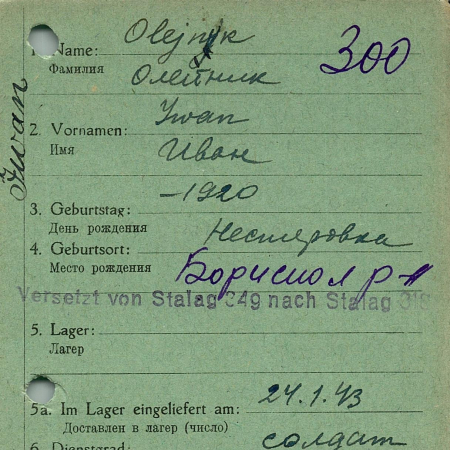 Olejnyk 300
1. Name:
Фамилия Олейник
Iwan
Ywan
2. Vornamen:
Имя Иван
-1920
3. Geburtstag:
День рождения
Нестеровка
4. Geburtsort:
Место рождения Бориспол р-н
Versetzt von Stalag 349 nach Stalag
5. Lager:
Лагер
24.1.43
5a. Im Lager eingeliefert am:
Доставлен в лагер (число)
солдат
6. Dienstgrad: